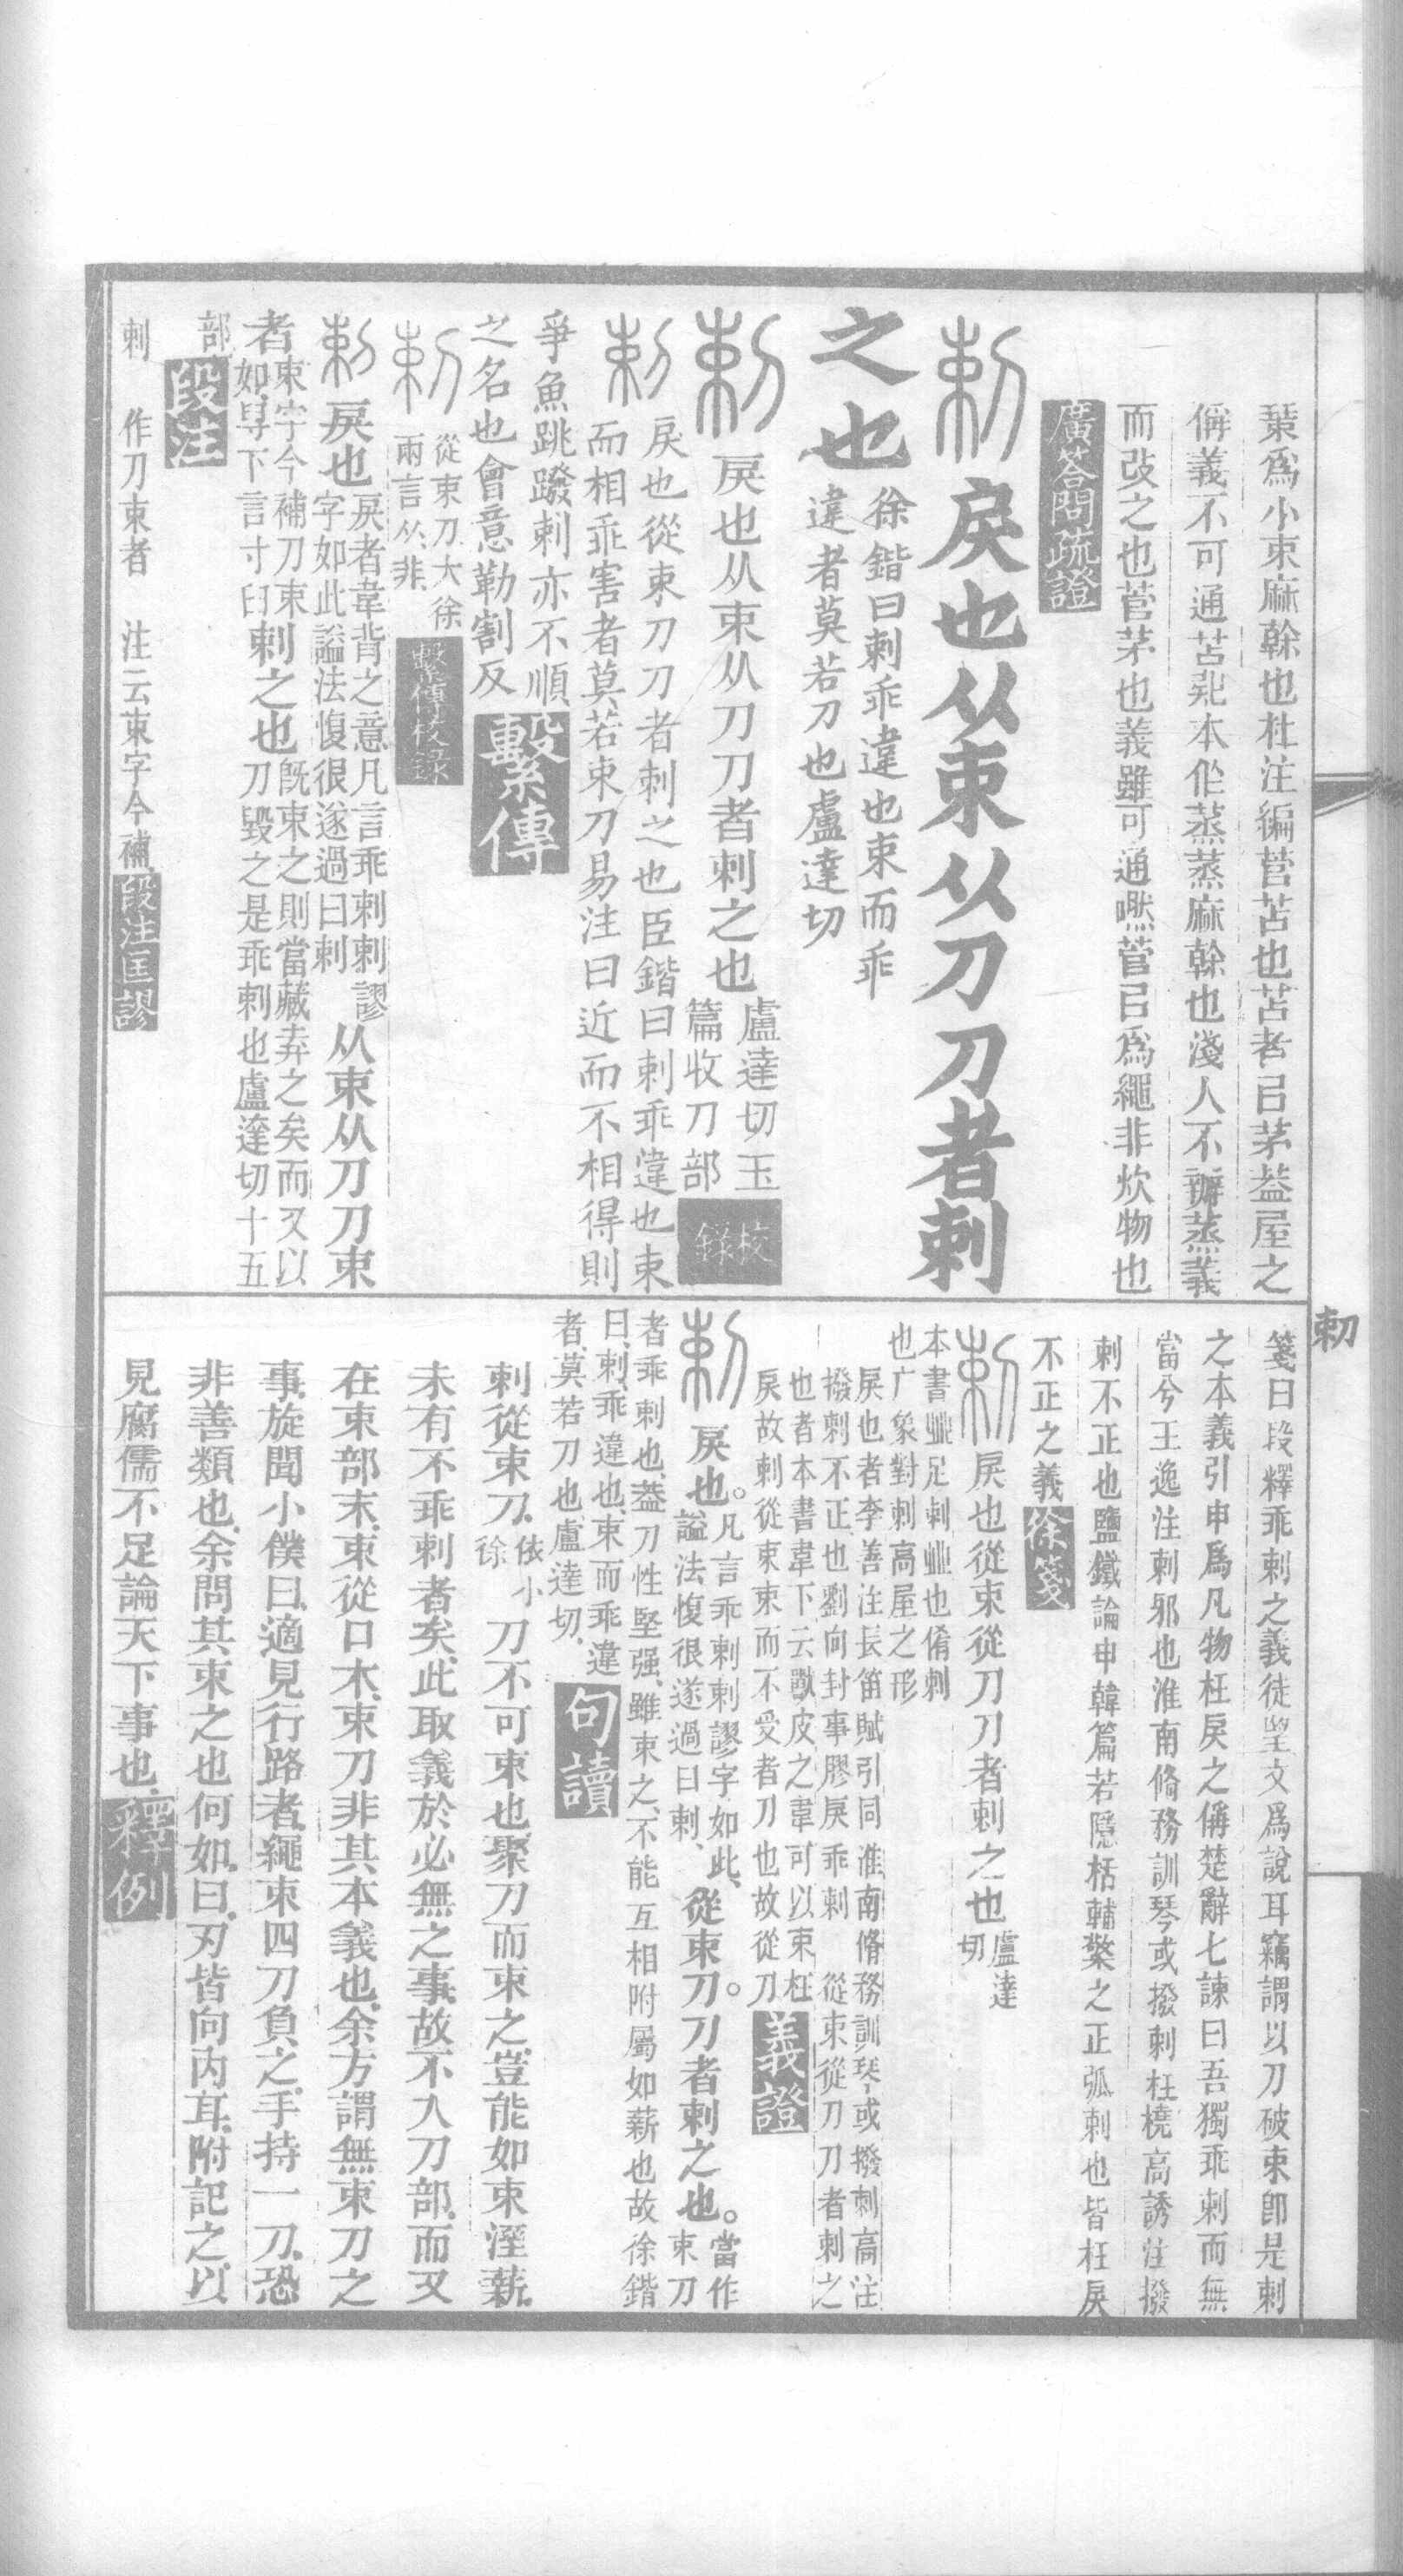 葉爲小束麻榦也杜注編菅苫也苫者㠯茅葢屋之
偁義不可通苫
本作蒸蒸麻榦也淺人不辧蒸義
而改之也菅茅也義雖可通嘫菅㠯爲繩非炊物也
廣答問疏證
剌戾也从束从刀刀者剌
之也
徐鍇曰剌乖違也束而乖
違者莫若刀也盧達切
剌戾也从束从刀刀者剌之也
盧達切玉
篇收刀部
校錄
剌
戾也從束刀刀者剌之也臣鍇曰剌乖違也束
而相乖害者莫若束刀易注曰近而不相得則
爭魚跳蹳剌亦不順
之名也會意勒割反
繫傳
剌
從束刀大徐
兩言从非
繫傳校錄
剌戾也
戾者韋背之意凡言乖剌剌謬
字如此諡法愎很遂過曰剌
从束从刀刀束
者
束字今補刀束
如㝵下言寸臼
剌之也
旣束之則當藏弆之矣而又以
刀毀之是乖剌也盧達切十五
部
段注
剌 作刀束者 注云束字今補
段注匡謬
剌
箋曰段釋乖剌之義徒望文爲說耳竊謂以刀破束卽是剌
之本義引申爲凡物枉戾之偁楚辭七諫曰吾獨乖剌而無
當兮王逸注剌邪也淮南脩務訓琴或撥剌枉橈高誘注撥
剌不正也鹽鐵論申韓篇若隱栝輔檠之正弧剌也皆枉戾
不正之義
徐箋
剌戾也從束從刀刀者剌之也
盧達
切
本書𣥠足剌𣥠也䏽剌
也广象對剌高屋之形
戾也者李善注長笛賦引同淮南脩務訓琴或撥剌高注
撥剌不正也劉向封事膠戾乖剌 從束從刀刀者剌之
也者本書韋下云獸皮之韋可以束枉
戾故剌從束束而不受者刀也故從刀
義證
剌戾也。
凡言乖剌剌謬字如此、
諡法愎很遂過曰剌、
從束刀。刀者剌之也。
當作
束刀
者乖剌也、葢刀性堅强、雖束之、不能互相附屬如薪也故徐鍇
曰、剌、乖違也、束而乖違
者、莫若刀也、盧達切、
句讀
剌從束刀、
依小
徐
刀不可束也聚刀而束之、豈能如束溼薪、
未有不乖剌者矣、此取義於必無之事、故不入刀部、而又
在束部末、束從口木、束刀非其本義也、余方謂無束刀之
事、旋聞小僕曰、適見行路者、繩束四刀負之、手持一刀、恐
非善類也、余問其束之也何如、曰、刃皆向內耳、附記之、以
見腐儒不足論天下事也、
釋例